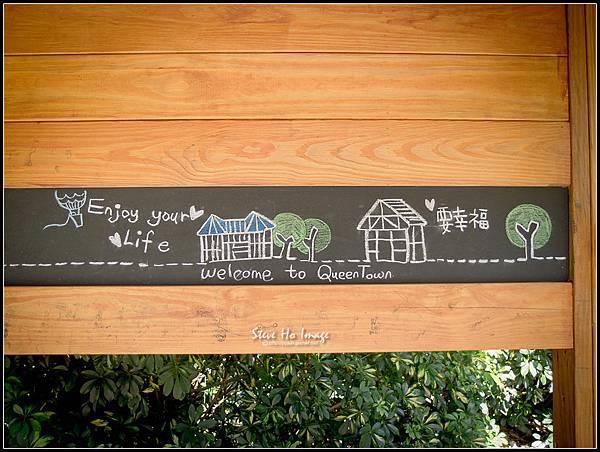 Enjoy your
Life
要幸福
Welcome to QueenTown
Steve Ho Image